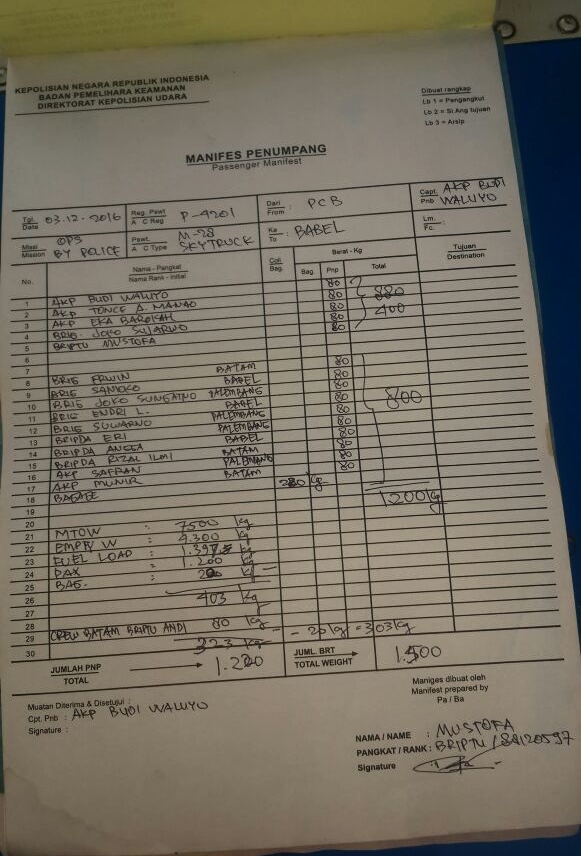 KEPOLISIAN NEGARA REPUBLIK INDONESIA
BADAN PEMELIHARA KEAMANAN
DIREKTORAT KEPOLISIAN UDARA
Dibuat rangkap
Lb 1 = Pengangkut
Lb 2 = Si.Ang tujuan
Lb 3 = Arsip
MANIFES PENUMPANG
Passenger Manifest
Tgl Date : 03.12.2016 Reg. Pswt A C Reg : P-4201 Dari From : PCB Capt. Pnb : AKP BUDI WALUYO
Misi Mission : OPS BY POLICE Pswt. A C Type : M-28 SKYTRUCK Ke To : BABEL Lm. Fc. :
No. Nama - Pangkat Name Rank - Initial Coli Bag. Berat - Kg Bag. Pnp Total Tujuan Destination
1 AKP BUDI WALUYO 80
2 AKP TONCE A. MANAO 80
3 AKP EKA BAROKAH 80 400
4 BRIG. JOKO SUJARWO 80
5 BRIPTU MUSTOFA 80
6
7
8 BRIG ERWIN BATAM 80
9 BRIG SANJOKO BABEL 80
10 BRIG JOKO SUNGATNO PALEMBANG 80
11 BRIG ENDRI L. BABEL 80 800
12 BRIG SUWARNO PALEMBANG 80
13 BRIPDA ERI PALEMBANG 80
14 BRIPDA ANGGA BABEL 80
15 BRIPDA RIZAL ILMI BATAM 80
16 AKP SAFRAN PALEMBANG 80
17 AKP MUNIR BATAM 80
18 BAGASE Kg 1200 Kg
19
20
21 MTOW : 7500 Kg
22 EMPTY W : 4.300 Kg
23 FUEL LOAD : Kg
24 PAX : 1.200 Kg
25 BAG. : Kg
26 403 Kg
27
28
29 CREW BATAM BRIPTU ANDI 80 Kg
30 323 Kg - 20 Kg = 303 Kg
JUMLAH PNP TOTAL JUML. BRT TOTAL WEIGHT
Muatan Diterima & Disetujui :
Cpt. Pnb : AKP BUDI WALUYO
Signature :
Maniges dibuat oleh
Manifest prepared by
Pa / Ba
NAMA / NAME : MUSTOFA
PANGKAT / RANK : BRIPTU / 88120597
Signature :